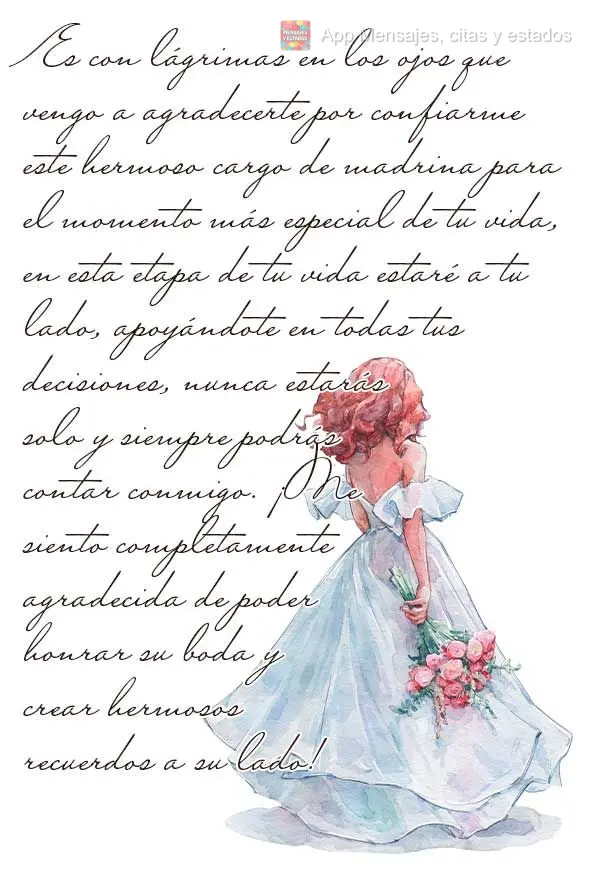 MENSAJES
Y ESTADOS
App Mensajes, citas y estados
Es con lágrimas en los ojos que
vengo a agradecerte por confiarme
este hermoso cargo de madrina para
el momento más especial de tu vida,
en esta etapa de tu vida estaré a tu
lado, apoyándote en todas tus
decisiones, nunca estarás
solo y siempre podrás
contar conmigo. ¡Me
siento completamente
agradecida de poder
honrar su boda y
crear hermosos
recuerdos a su lado!